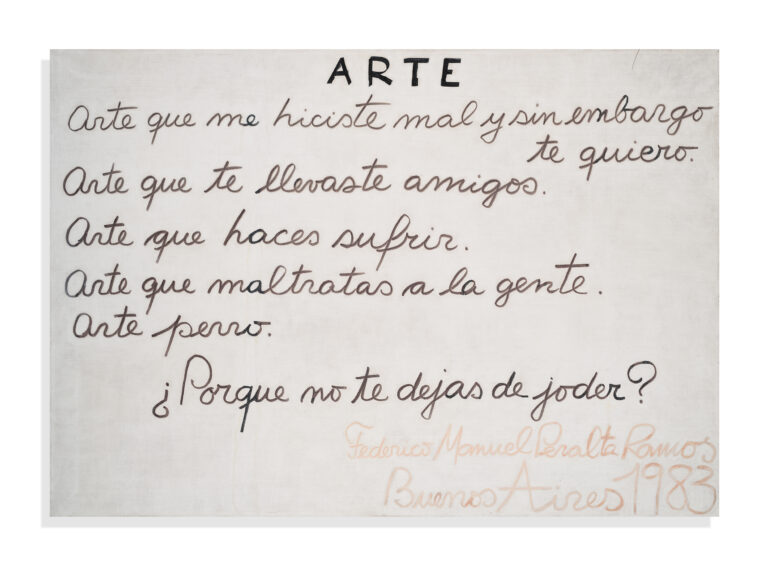 ARTE
Arte que me hiciste mal y sin embargo
te quiero.
Arte que te llevaste amigos.
Arte que haces sufrir.
Arte que maltratas a la gente.
Arte perro.
¿Porque no te dejas de joder?
Federico Manuel Peralta Ramos
Buenos Aires 1983